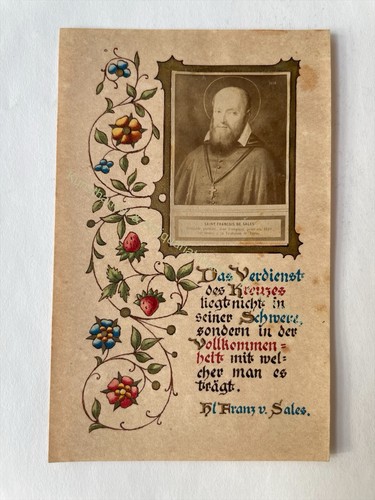 SAINT FRANCOIS DE SALES
Das Verdienst
des Kreuzes
liegt nicht in
seiner Schwere,
sondern in der
Vollkommen-
heit mit wel-
cher man es
trägt.
Hl Franz v. Sales.